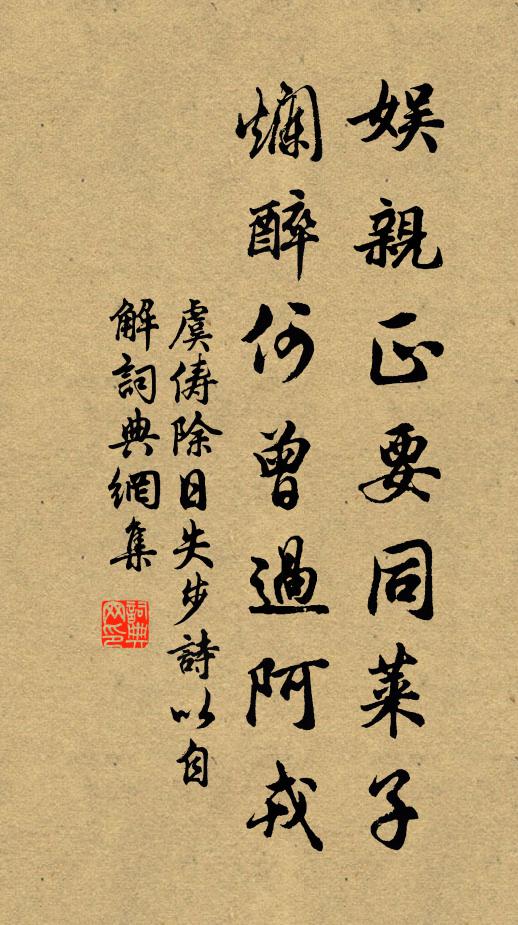 娱親正要同萊子
爛醉何曾過阿戎
虞儔除日失步詩以自
解詞典網集
詞典
网印